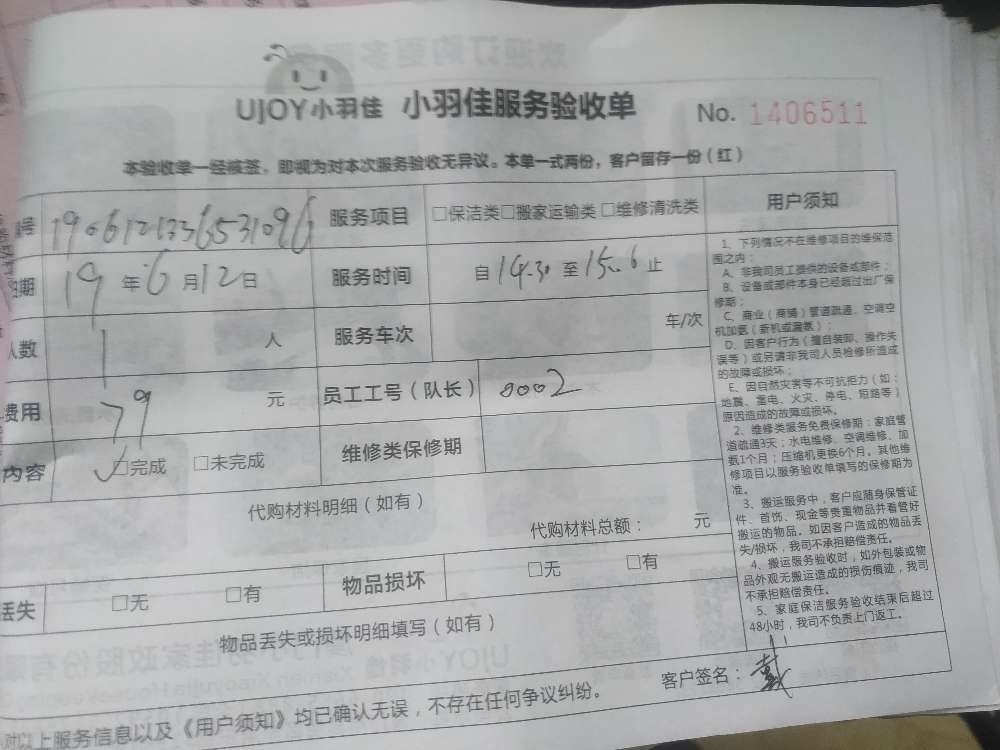 UJOY小羽佳 小羽佳服务验收单 No. 1406511
本验收单一经被签，即视为对本次服务验收无异议。本单一式两份，客户留存一份（红）
号 服务项目 □保洁类□搬家运输类 □维修清洗类
期 19年6月12日 服务时间 自14.30至15.6止
人数 1 人 服务车次 车/次
费用 79 元 员工工号（队长） 0002
内容 ✓□完成 □未完成 维修类保修期
代购材料明细（如有）
代购材料总额： 元
丢失 □无 □有 物品损坏 □无 □有
物品丢失或损坏明细填写（如有）
用户须知
1、下列情况不在维修项目的维保范
围之内：
A、非我司员工提供的设备或部件；
B、设备或部件本身已经超过出厂保
修期；
C、商业（商铺）管道疏通、空调空
机加氨（新机或漏氨）；
D、因客户行为（擅自装卸、操作失
误等）或另请非我司人员检修所造成
的故障或损坏；
E、因自然灾害等不可抗拒力（如：
地震、雷电、火灾、停电、短路等）
原因造成的故障或损坏。
2、维修类服务免费保修期：家庭管
道疏通3天；水电维修、空调维修、加
氨1个月；压缩机更换6个月。其他维
修项目以服务验收单填写的保修期为
准。
3、搬运服务中，客户应随身保管证
件、首饰、现金等贵重物品并看管好
搬运的物品。如因客户造成的物品丢
失/损坏，我司不承担赔偿责任。
4、搬运服务验收时，如外包装或物
品外观无搬运造成的损伤痕迹，我司
不承担赔偿责任。
5、家庭保洁服务验收结束后超过
48小时，我司不负责上门返工。
对以上服务信息以及《用户须知》均已确认无误，不存在任何争议纠纷。 客户签名：戴